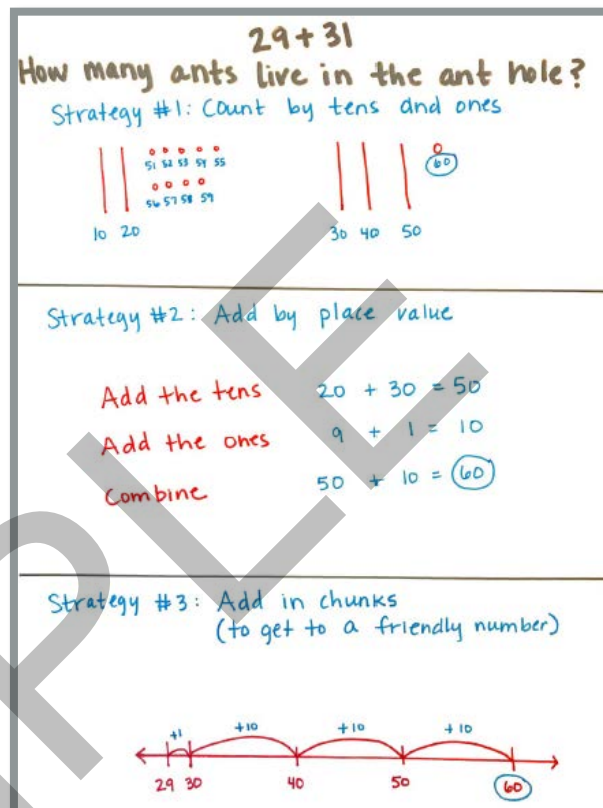 29 + 31
How many ants live in the ant hole?
Strategy #1: Count by tens and ones
51 52 53 54 55
60
56 57 58 59
10 20
30 40 50
Strategy #2: Add by place value
Add the tens 20 + 30 = 50
Add the ones 9 + 1 = 10
Combine 50 + 10 = 60
Strategy #3: Add in chunks
(to get to a friendly number)
+1 +10 +10 +10
29 30 40 50 60
PLE